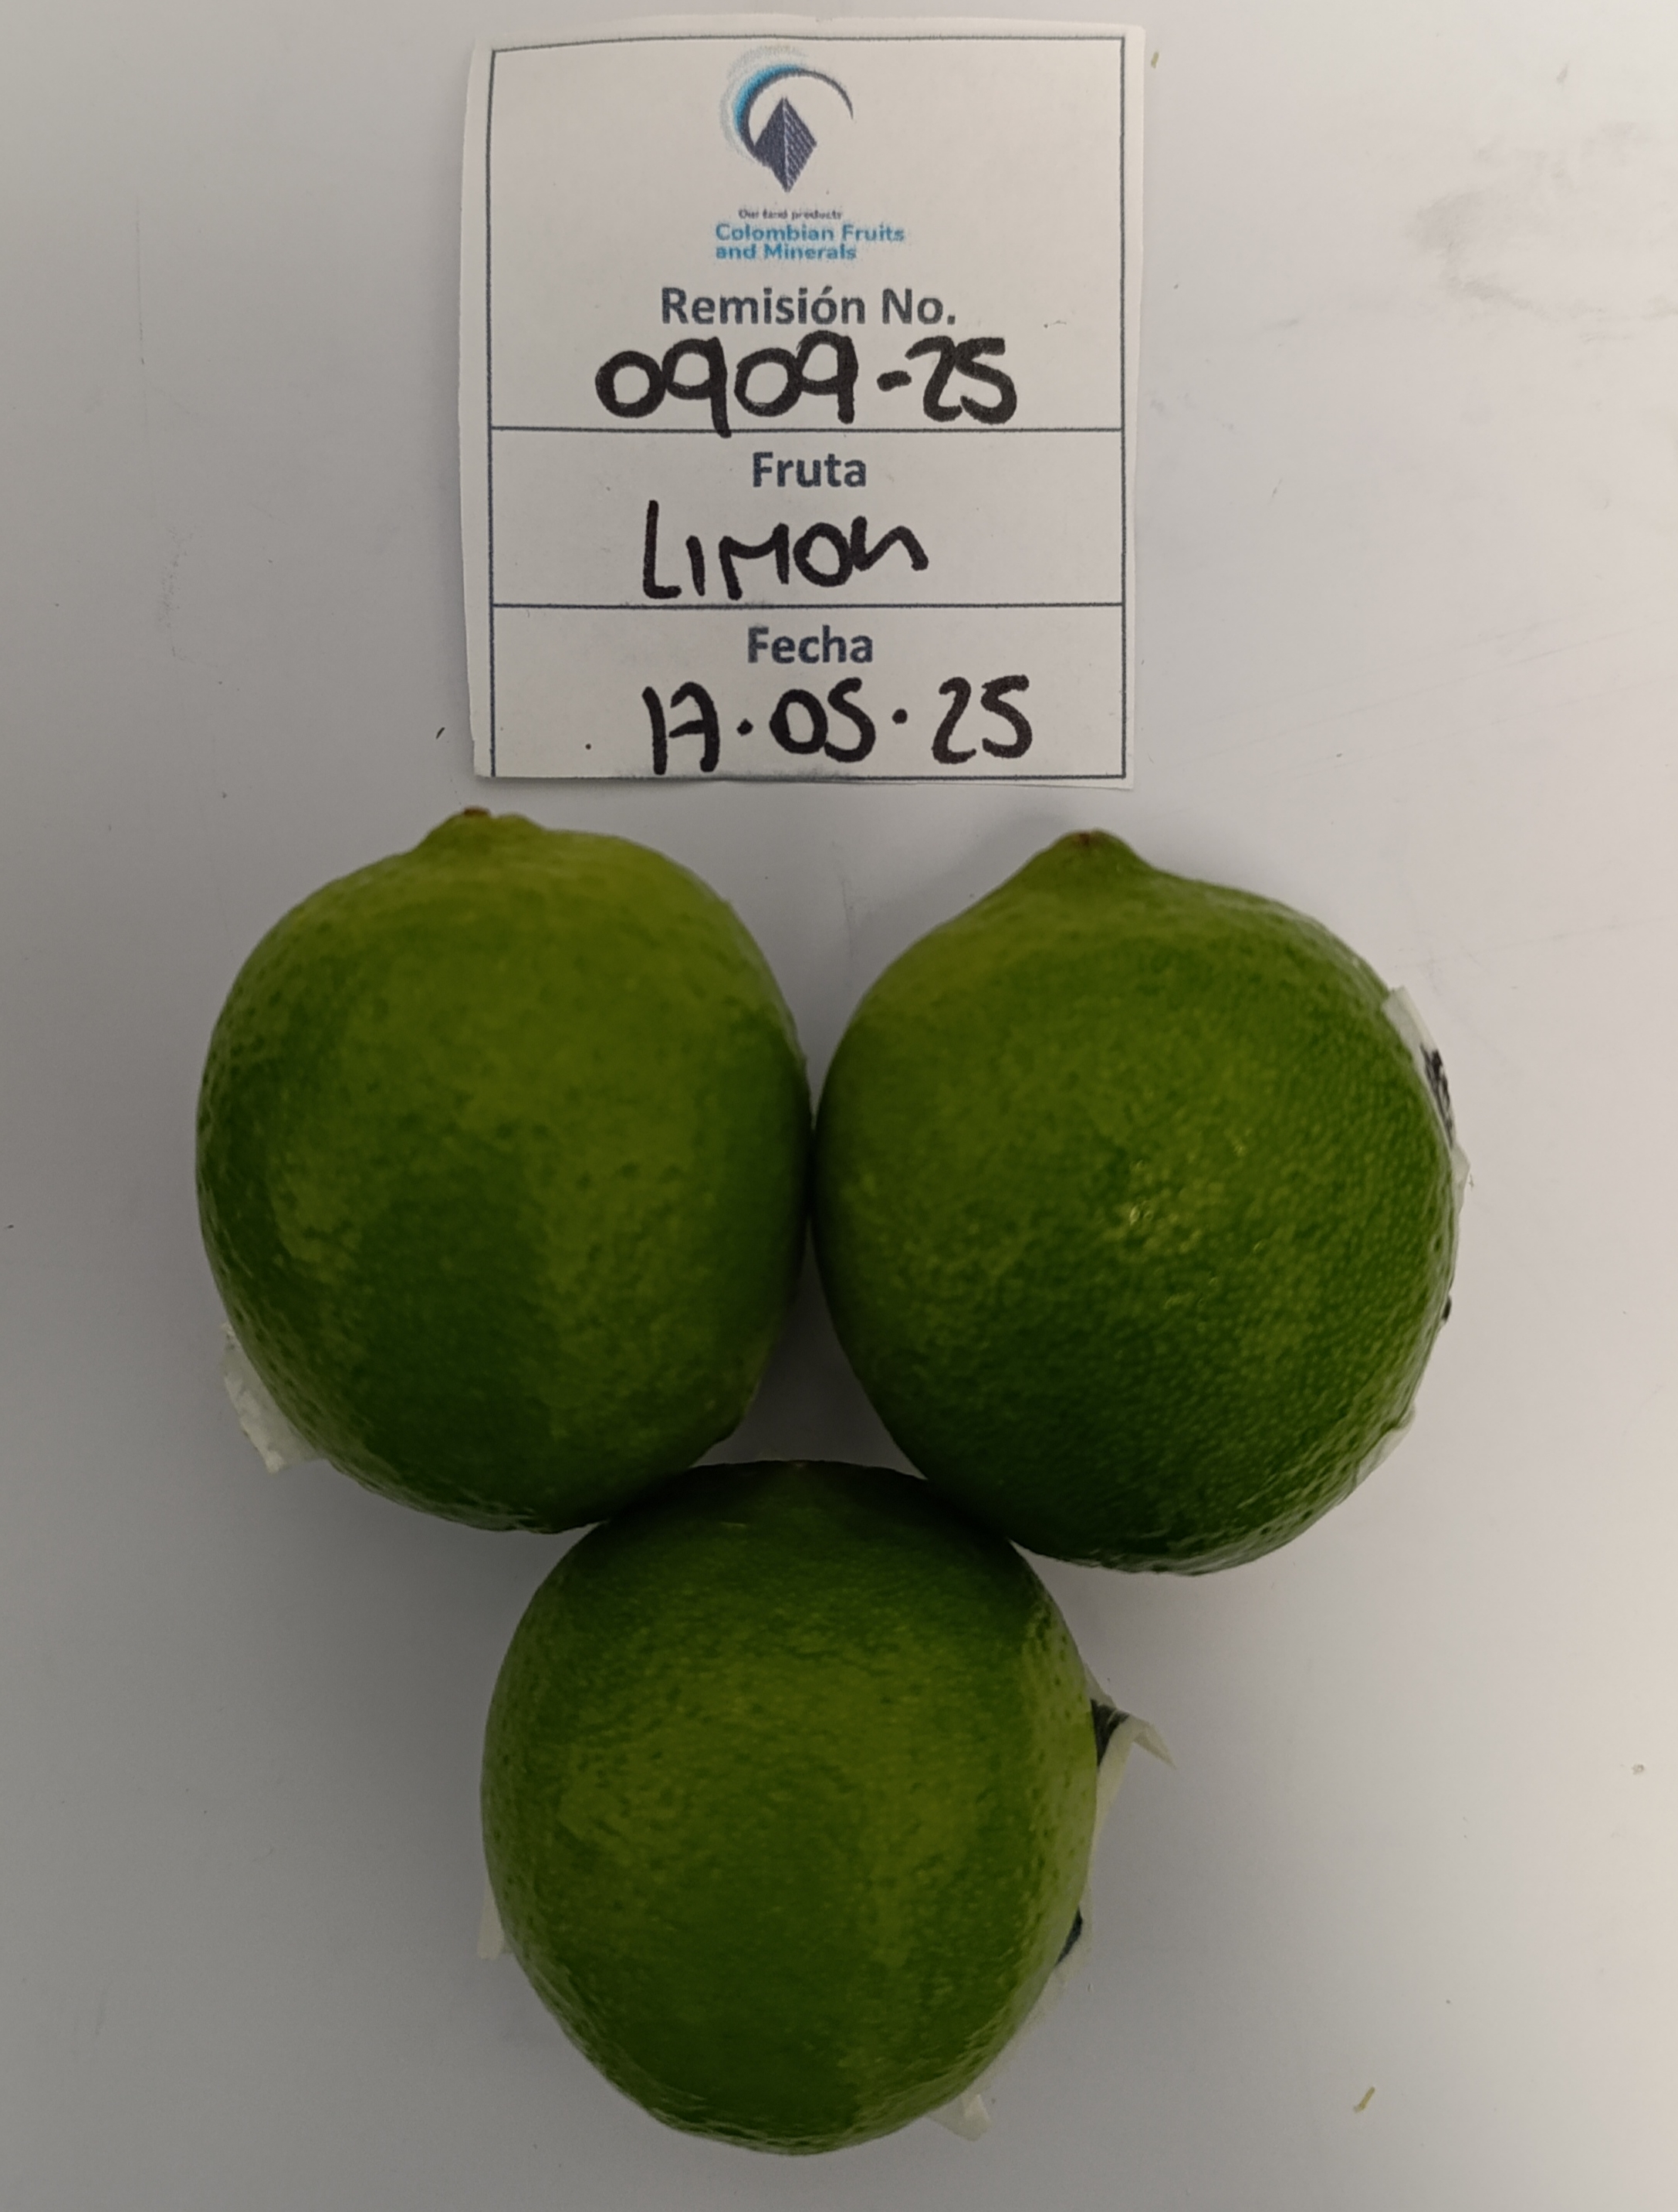 Our land products
Colombian Fruits
and Minerals
Remisión No.
0909-25
Fruta
LIMON
Fecha
17.05.25